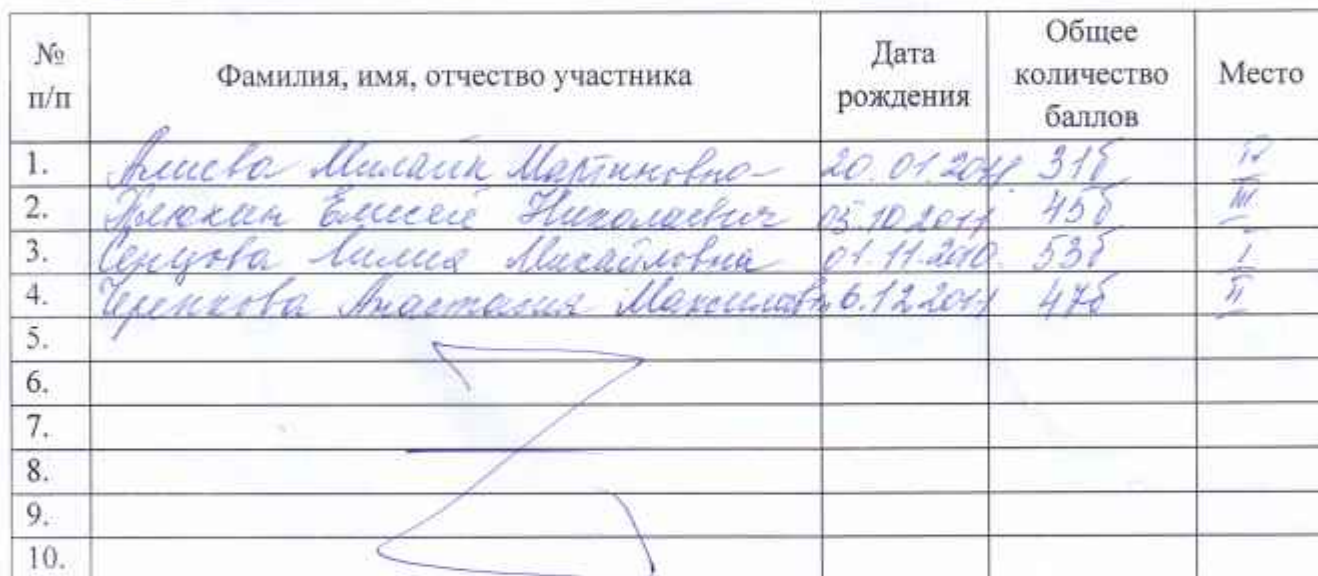 № п/п Фамилия, имя, отчество участника Дата рождения Общее количество баллов Место
1. Алиева Милана Мартиновна 20.01.2011 31б IV
2. Елисей Николаевич 05.10.2011 45б III
3. Сенцова Лилия Михайловна 01.11.2010. 53б I
4. Черенкова Анастасия 6.12.2011 47б II
5.
6.
7.
8.
9.
10.